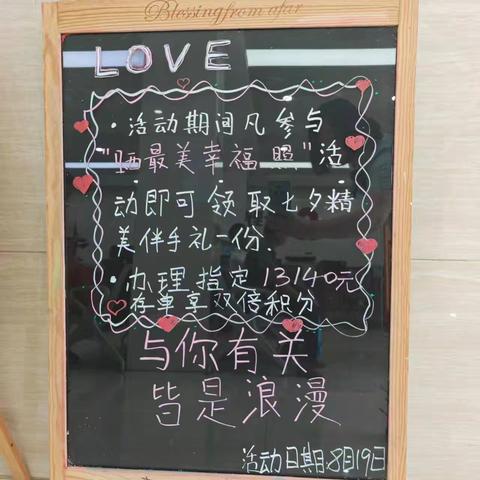 Blessing from afar
LOVE
·活动期间凡参与
"晒最美幸福照"活
动即可领取七夕精
美伴手礼一份.
·办理指定13140元
存单享双倍积分
与你有关
皆是浪漫
活动日期:8月19日